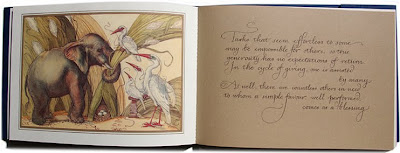 Tasks that seem effortless to some
may be impossible for others, & true
generosity has no expectations of return.
In the cycle of giving, one is assisted
by many.
As well, there are countless others in need
to whom a simple favour well performed
comes as a blessing